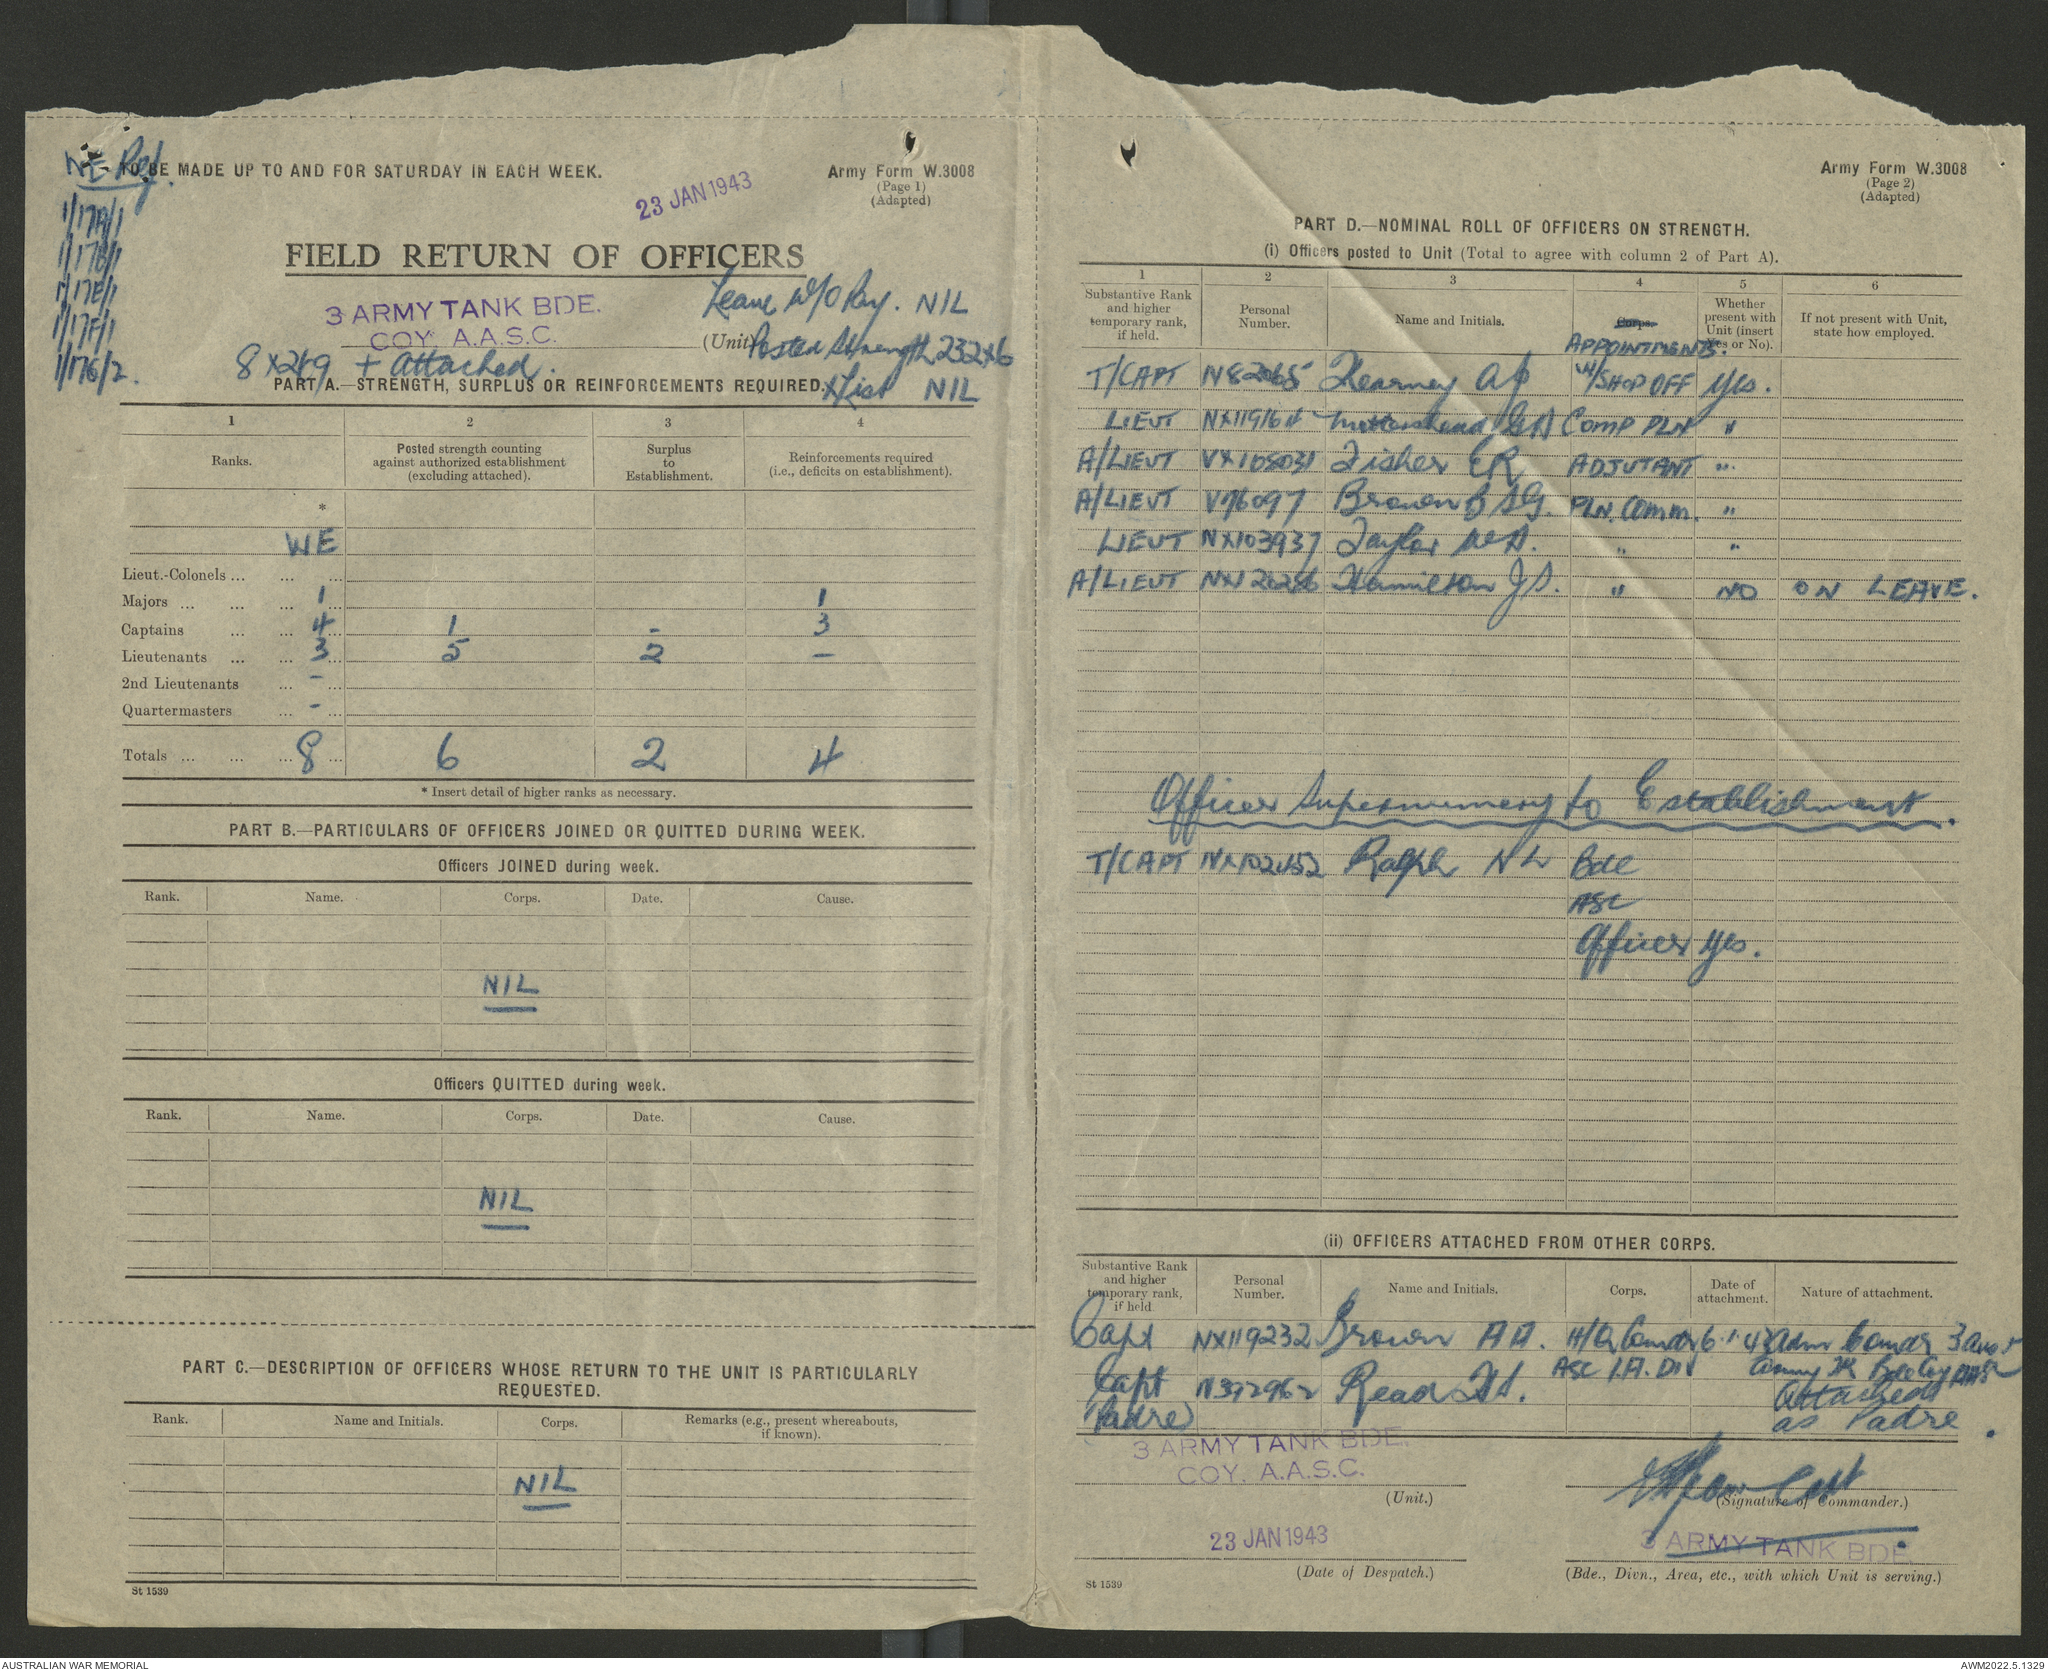 WE Ref.
1/17A/1
1/17B/1
1/17E/1
1/17F/1
1/17G/2.
TO BE MADE UP TO AND FOR SATURDAY IN EACH WEEK.
23 JAN 1943
Army Form W.3008
(Page 1)
(Adapted)
FIELD RETURN OF OFFICERS
3 ARMY TANK BDE.
COY. A.A.S.C.
Leave W/O Pay. NIL
(Unit)
Posted Strength 232x6
8 x 249 + attached.
X List NIL
PART A.—STRENGTH, SURPLUS OR REINFORCEMENTS REQUIRED.
1 2 3 4
Ranks. Posted strength counting against authorized establishment (excluding attached). Surplus to Establishment. Reinforcements required (i.e., deficits on establishment).
*
WE
Lieut.-Colonels ... ... ...
Majors ... ... ... 1 1
Captains ... ... 4 1 - 3
Lieutenants ... ... 3 5 2 –
2nd Lieutenants ... - ...
Quartermasters ... - ...
Totals ... ... ... 8 6 2 4
* Insert detail of higher ranks as necessary.
PART B.—PARTICULARS OF OFFICERS JOINED OR QUITTED DURING WEEK.
Officers JOINED during week.
Rank. Name. Corps. Date. Cause.
NIL
Officers QUITTED during week.
Rank. Name. Corps. Date. Cause.
NIL
PART C.—DESCRIPTION OF OFFICERS WHOSE RETURN TO THE UNIT IS PARTICULARLY
REQUESTED.
Rank. Name and Initials. Corps. Remarks (e.g., present whereabouts, if known).
NIL
St 1539
Army Form W.3008
(Page 2)
(Adapted)
PART D.—NOMINAL ROLL OF OFFICERS ON STRENGTH.
(i) Officers posted to Unit (Total to agree with column 2 of Part A).
1 2 3 4 5 6
Substantive Rank and higher temporary rank, if held. Personal Number. Name and Initials. Corps. Whether present with Unit (insert Yes or No). If not present with Unit, state how employed.
APPOINTMENTS.
T/CAPT N82065 Kearney AJ W/SHOP OFF Yes.
LIEUT NX119164 Mottershead GA COMP PLN "
A/LIEUT VX105031 Fisher ER ADJUTANT "
A/LIEUT V76097 Brown B SG. PLN. COMM. "
LIEUT NX103937 Taylor WA. " "
A/LIEUT NX120286 Hamilton JS. " NO ON LEAVE.
Officer Supernumery to Establishment.
T/CAPT NX102452 Ralph NL Bde
ASC
Officer Yes.
(ii) OFFICERS ATTACHED FROM OTHER CORPS.
Substantive Rank and higher temporary rank, if held Personal Number. Name and Initials. Corps. Date of attachment. Nature of attachment.
Capt NX119232 Brown AA. H/Q Comdr 6.1.43 Adm Comdr 3 Aust
ASC 1.A. DIV Army TK Bde Coy AASC
Capt N392962 Read FA. Attached
(Padre) as Padre.
3 ARMY TANK BDE.
COY. A.A.S.C.
(Unit.)
Capt
(Signature of Commander.)
23 JAN 1943
(Date of Despatch.)
3 ARMY TANK BDE.
(Bde., Divn., Area, etc., with which Unit is serving.)
St 1539
AUSTRALIAN WAR MEMORIAL
AWM2022.5.1329